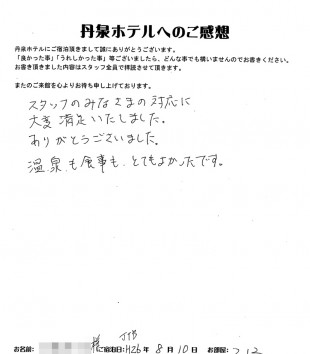 丹泉ホテルへのご感想
丹泉ホテルにご宿泊頂きまして誠にありがとうございます。
「良かった事」「うれしかった事」等ございましたら、どんな事でも構いませんのでお書きください。
お書き頂きました内容はスタッフ全員で拝読させて頂きます。
またのご来館を心よりお待ち申し上げております。
スタッフのみなさまの対応に
大変満足いたしました。
ありがとうございました。
温泉も食事も、とてもよかったです。
JTB
お名前: 様 ご宿泊日:H26年 8月 10日 お部屋: 212